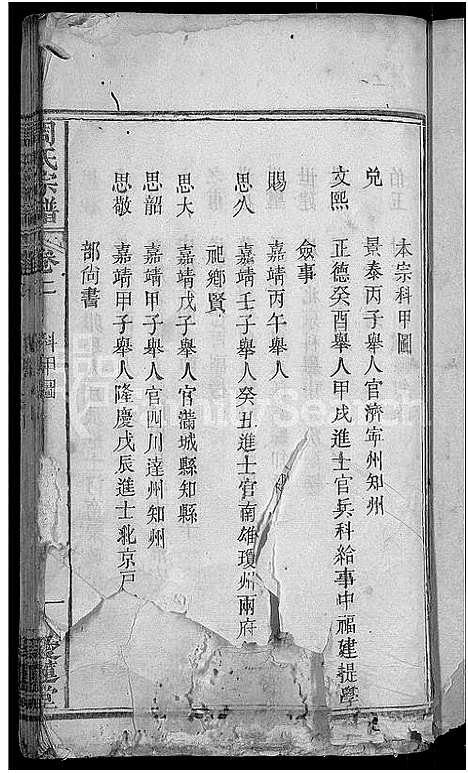 本宗科甲圖
兌　景泰丙子舉人官濟寧州知州
文熙　正德癸酉舉人甲戌進士官兵科給事中福建提學
僉事
賜　嘉靖丙午舉人
思久　嘉靖壬子舉人癸丑進士官南雄瓊州兩府
祀鄉賢
思大　嘉靖戊子舉人官滿城縣知縣
思韶　嘉靖甲子舉人官四川達州知州
思敬　嘉靖甲子舉人隆慶戊辰進士北京戸
部尚書
周氏宗譜　卷二　科甲圖　一　愛蓮堂